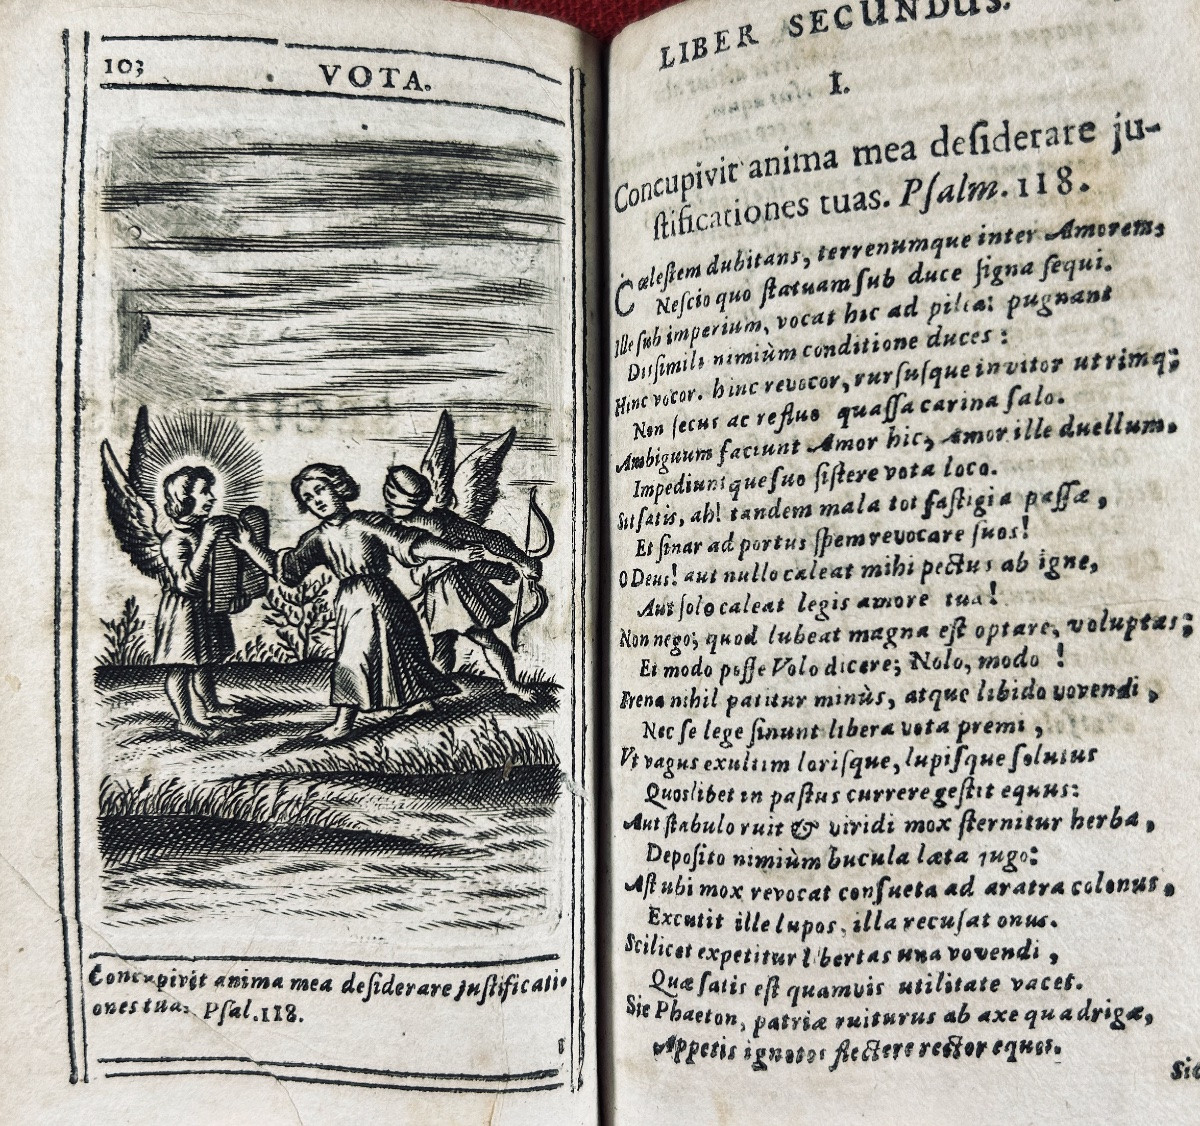 103
VOTA.
Concupivit anima mea desiderare justificati-
ones tuas Psal.118.
LIBER SECUNDUS.
I.
Concupivit anima mea desiderare ju-
stificationes tuas. Psalm. 118.
Cœlestem dubitans, terrenumque inter Amorem,
Nescio quo statuam sub duce signa sequi.
Ille sub imperium, vocat hic ad pila: pugnant
Dissimili nimiùm conditione duces:
Hinc vocor. hinc revocor, rursusque invitor utrimq;
Non secus ac refluo quassa carina salo.
Ambiguum faciunt Amor hic, Amor ille duellum.
Impediuntque suo sistere vota loco.
Sit satis, ah! tandem mala tot fastigia passæ,
Et sinar ad portus spem revocare suos!
O Deus! aut nullo caleat mihi pectus ab igne,
Aut solo caleat legis amore tuæ!
Non nego; quod lubeat magna est optare, voluptas;
Et modo posse Volo dicere; Nolo, modo!
Frena nihil patitur minùs, atque libido vovendi,
Nec se lege sinunt libera vota premi,
Vt vagus exultim lorisque, lupisque solutus
Quoslibet in pastus currere gestit equus:
Aut stabulo ruit & viridi mox sternitur herba,
Deposito nimiùm bucula læta jugo:
Ast ubi mox revocat consueta ad aratra colonus,
Excutit ille lupos, illa recusat onus.
Scilicet expetitur libertas una vovendi,
Quæ satis est quamvis utilitate vacet.
Sic Phaeton, patriæ ruiturus ab axe quadrigæ,
Appetis ignotos flectere rector equos.
Sic